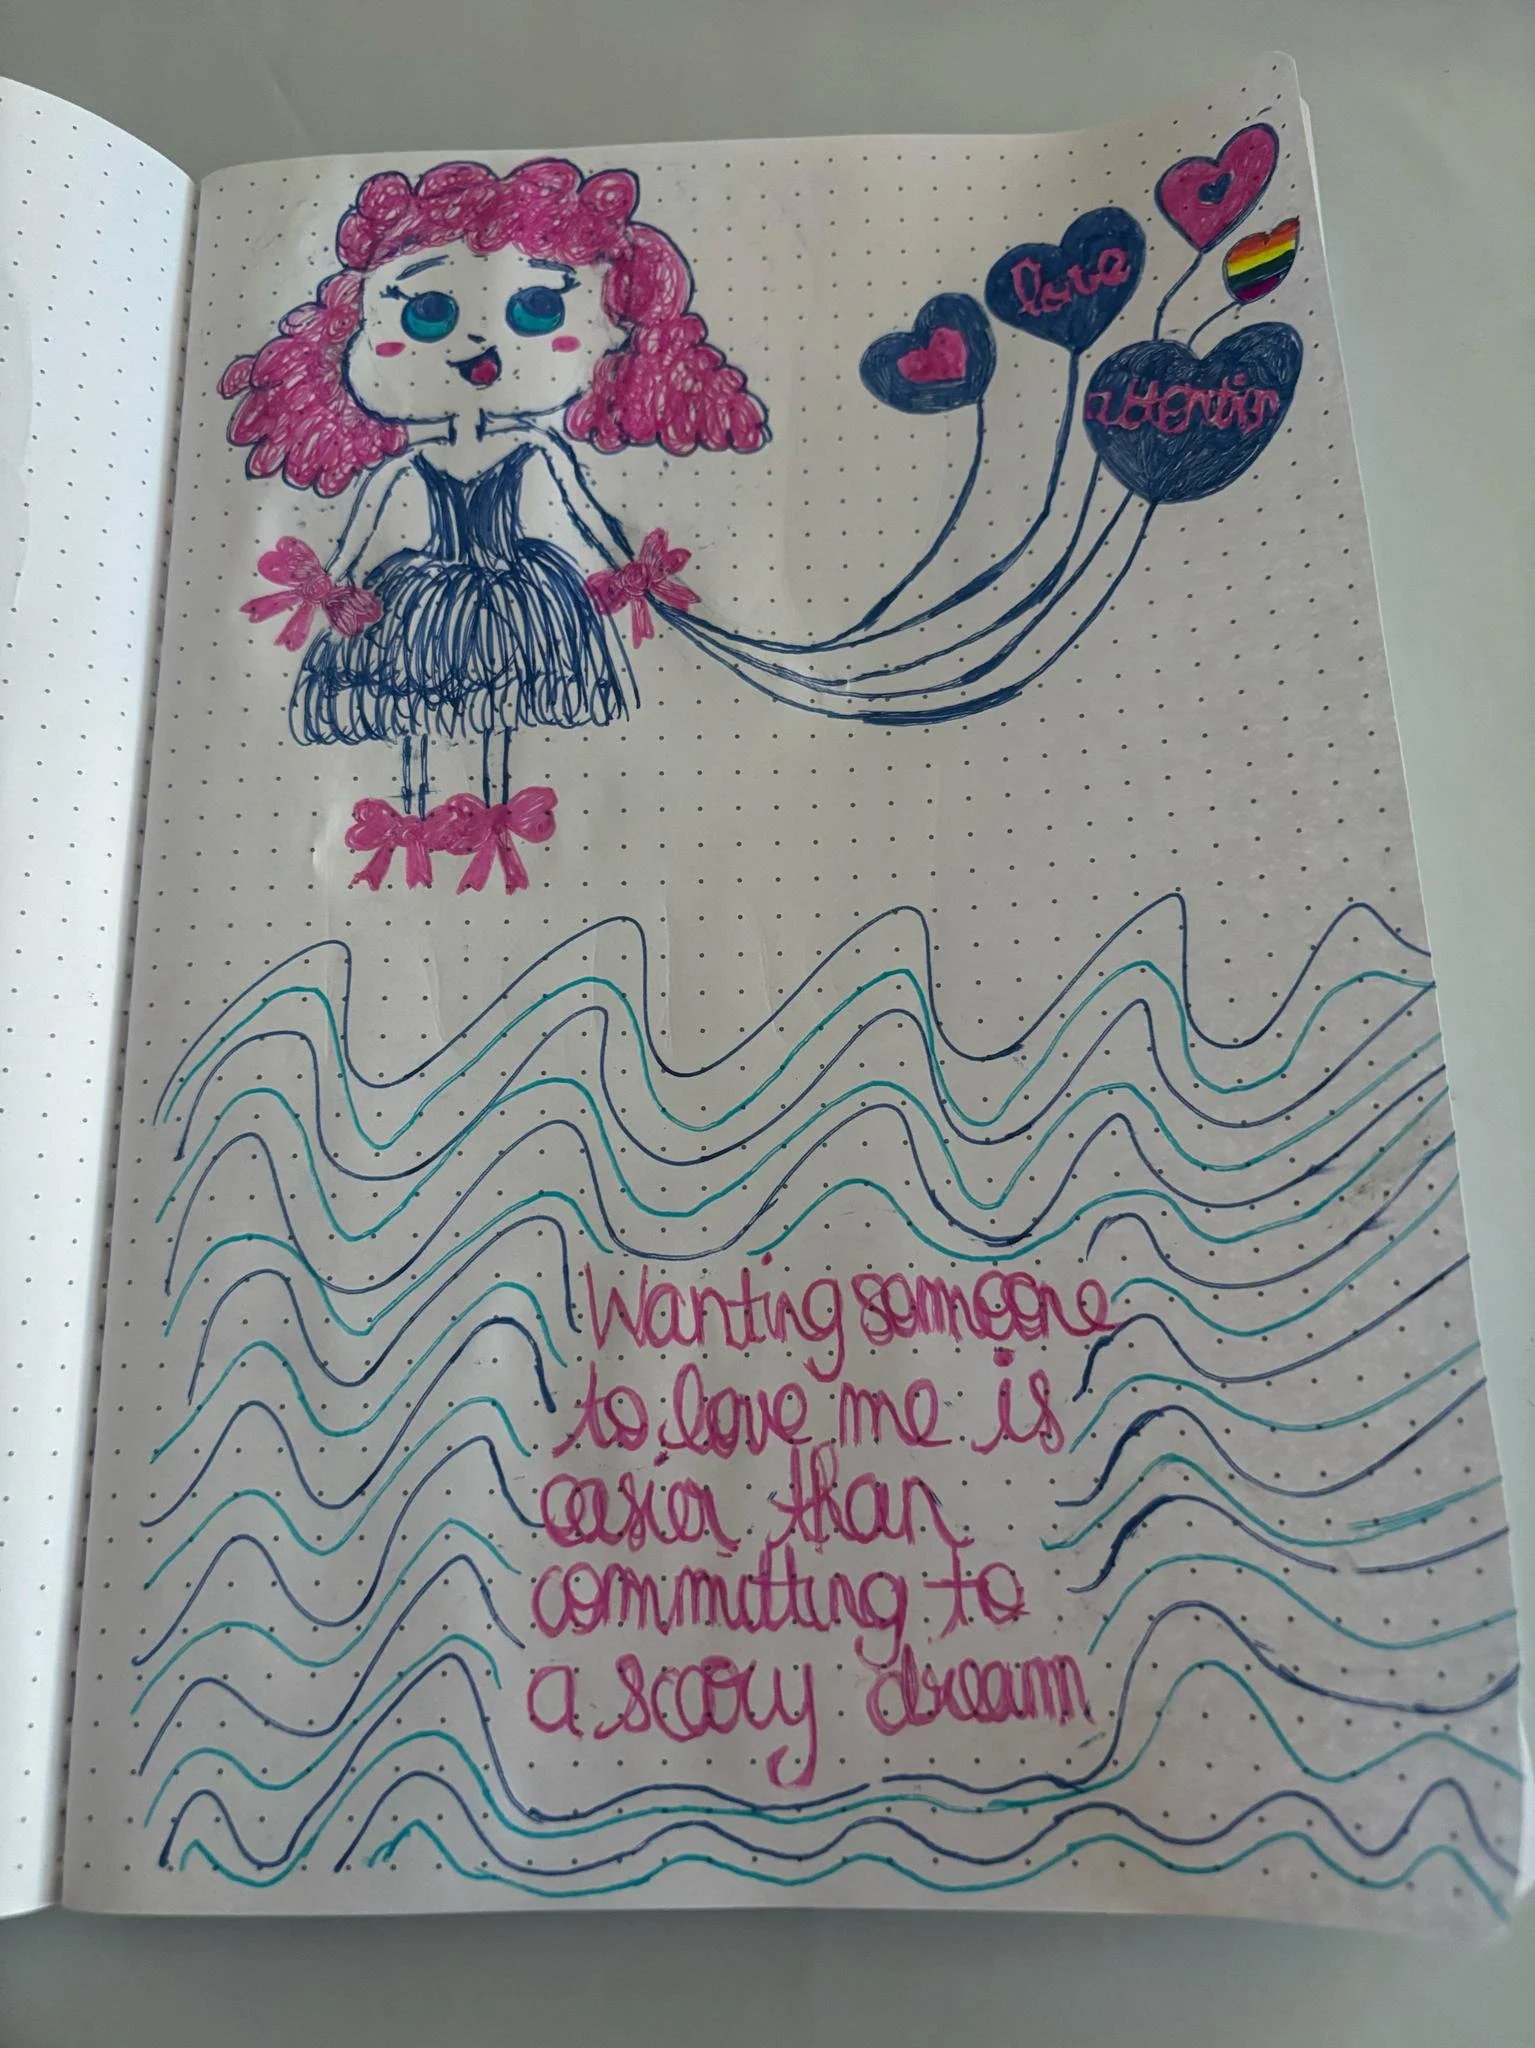 love
attention
Wanting someone
to love me is
easier than
committing to
a scary dream